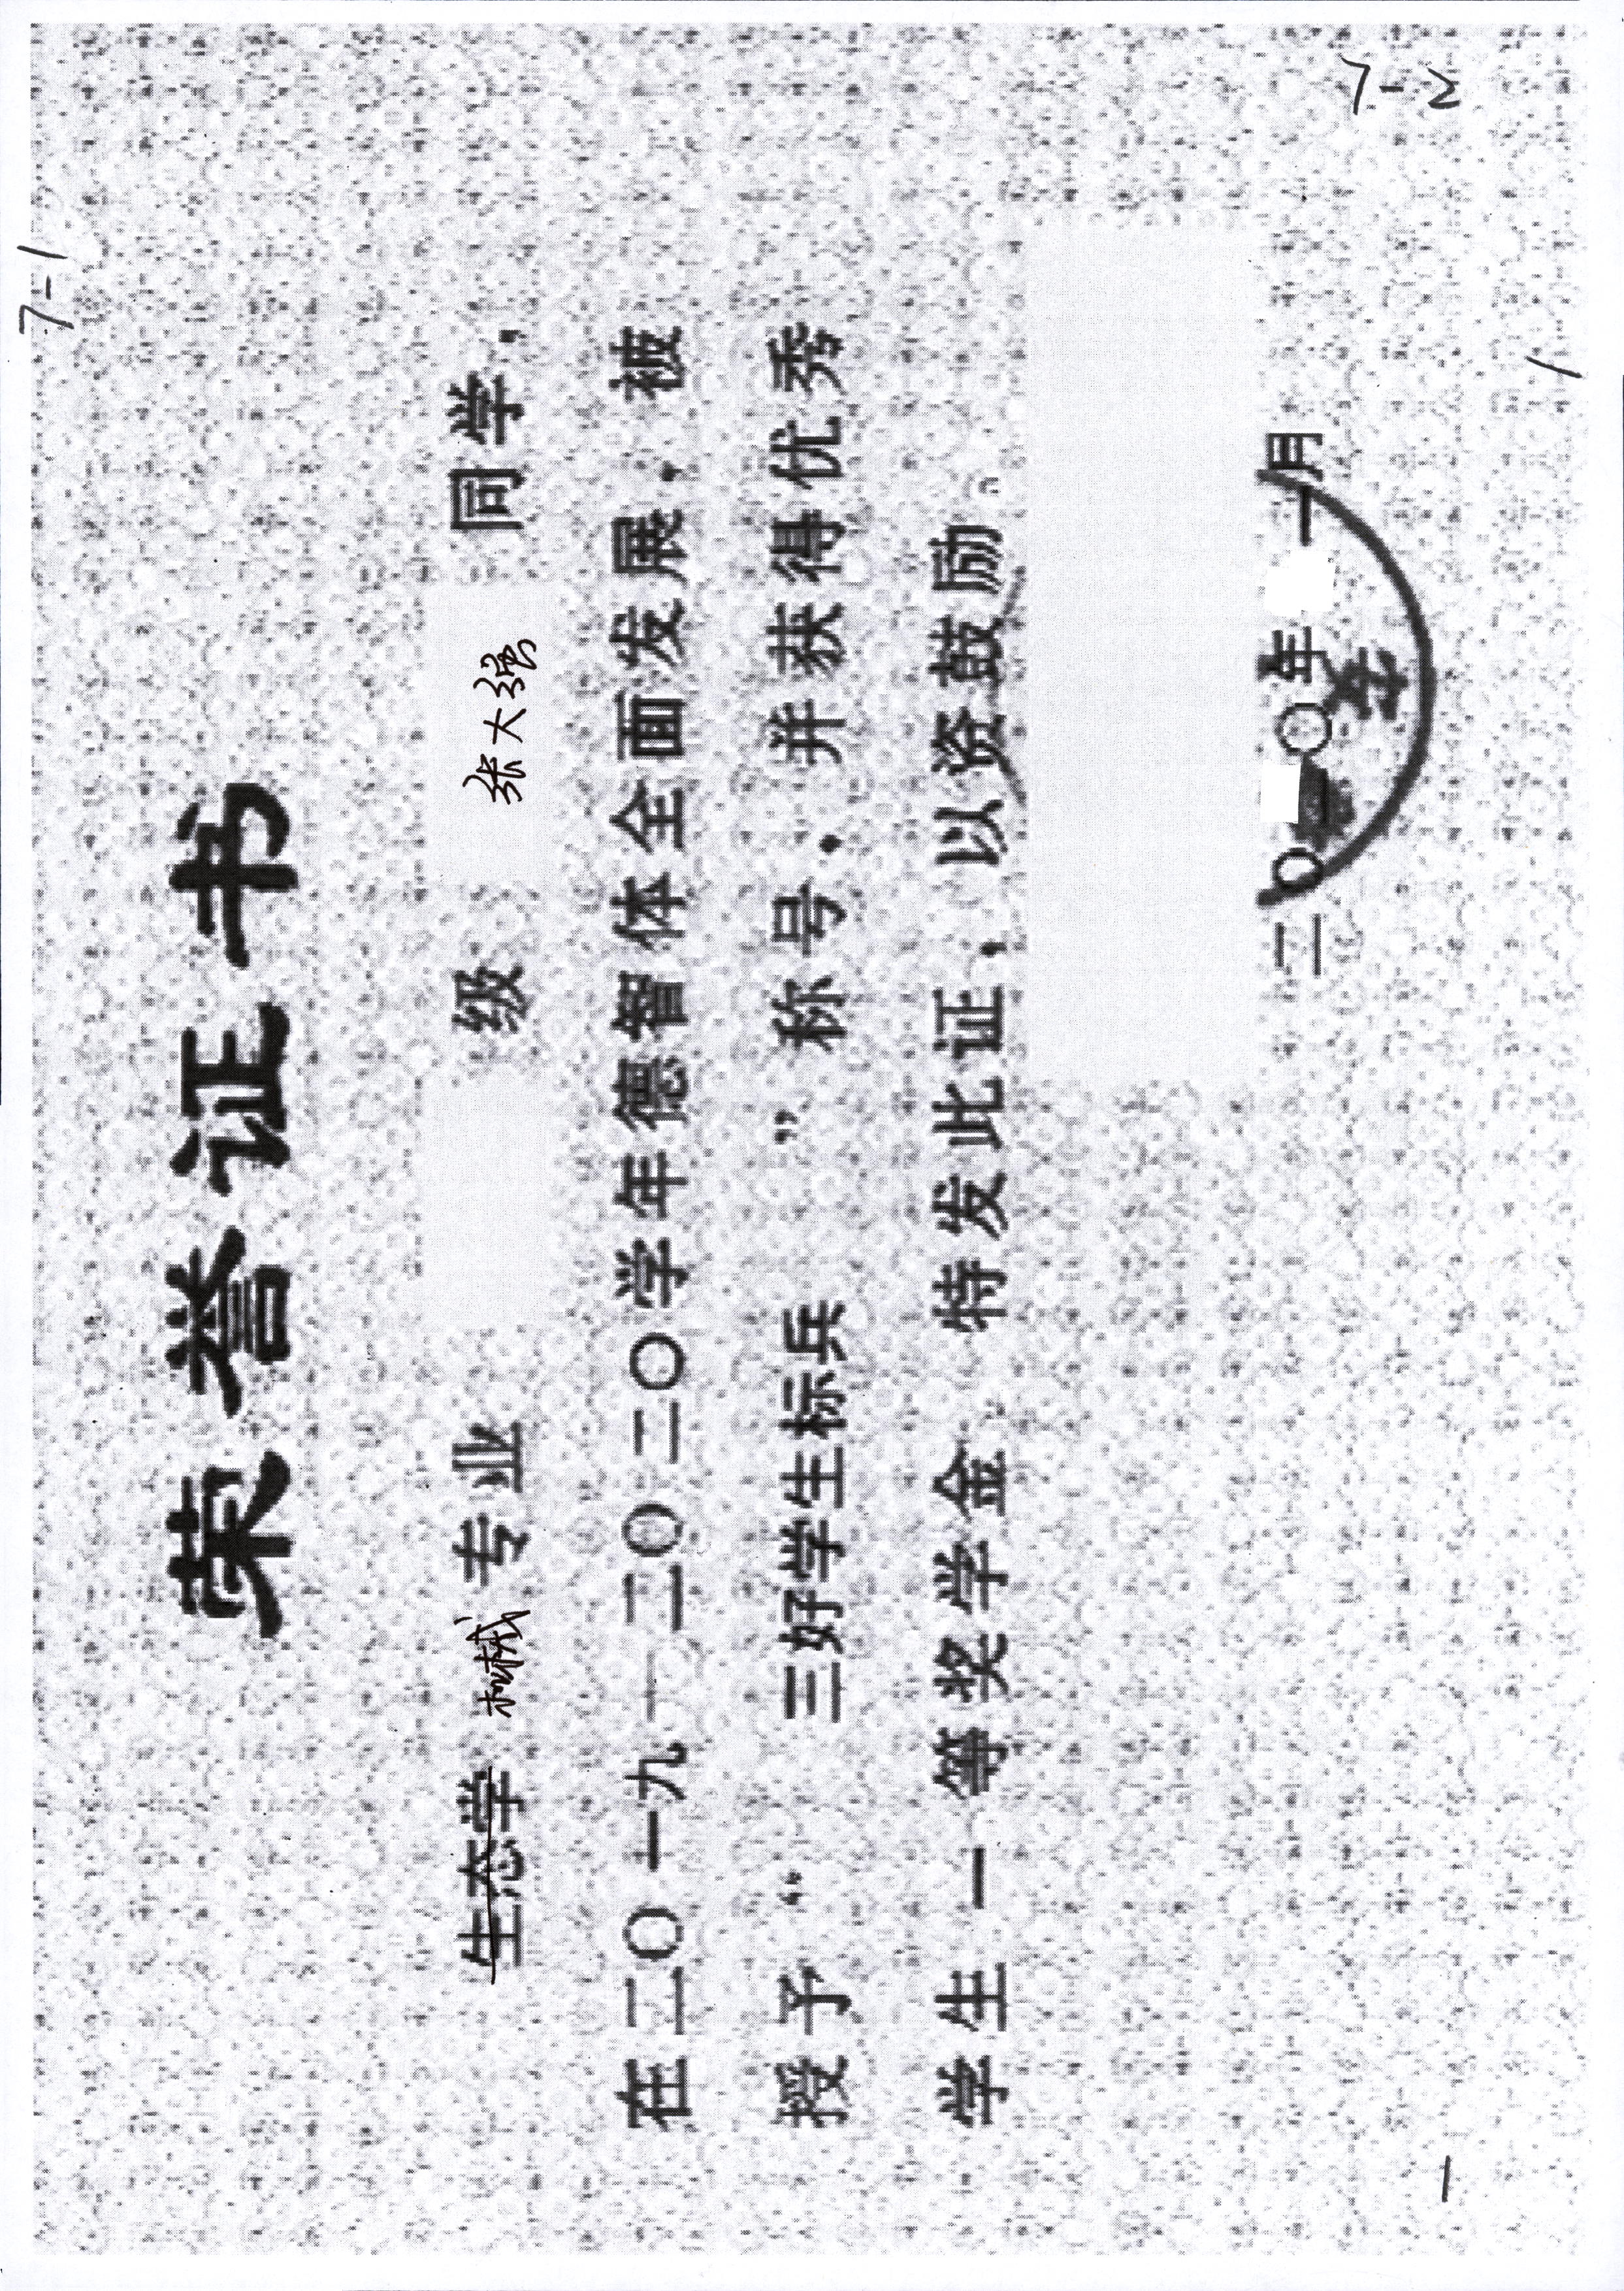 7-1
7-2
荣誉证书
生态学 机械 专业 级 张大强 同学，
在二〇一九—二〇二〇学年德智体全面发展，被
授予“ 三好学生标兵 ”称号，并获得优秀
学生一等奖学金 特发此证，以资鼓励。
二〇 〇年 一月